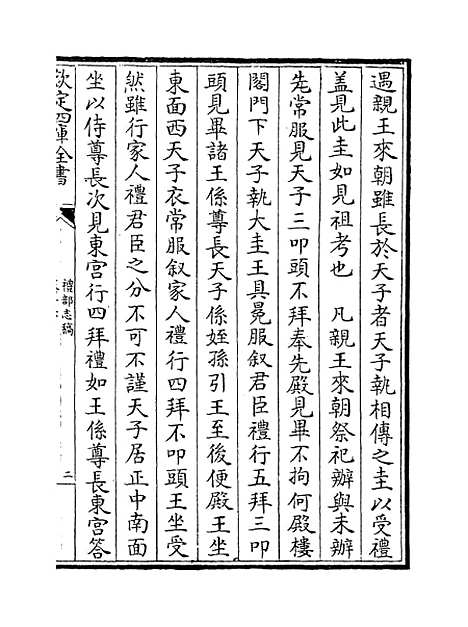 遇親王來朝雖長於天子者天子執相傳之圭以受禮
蓋見此圭如見祖考也　凡親王來朝祭祀辦與未辦
先常服見天子三叩頭不拜奉先殿見畢不拘何殿樓
閣門下天子執大圭王具冕服叙君臣禮行五拜三叩
頭見畢諸王係尊長天子係姪孫引王至後便殿王坐
東面西天子衣常服叙家人禮行四拜不叩頭王坐受
然雖行家人禮君臣之分不可不謹天子居正中南面
坐以侍尊長次見東宮行四拜禮如王係尊長東宮答
欽定四庫全書
禮部志稿
三